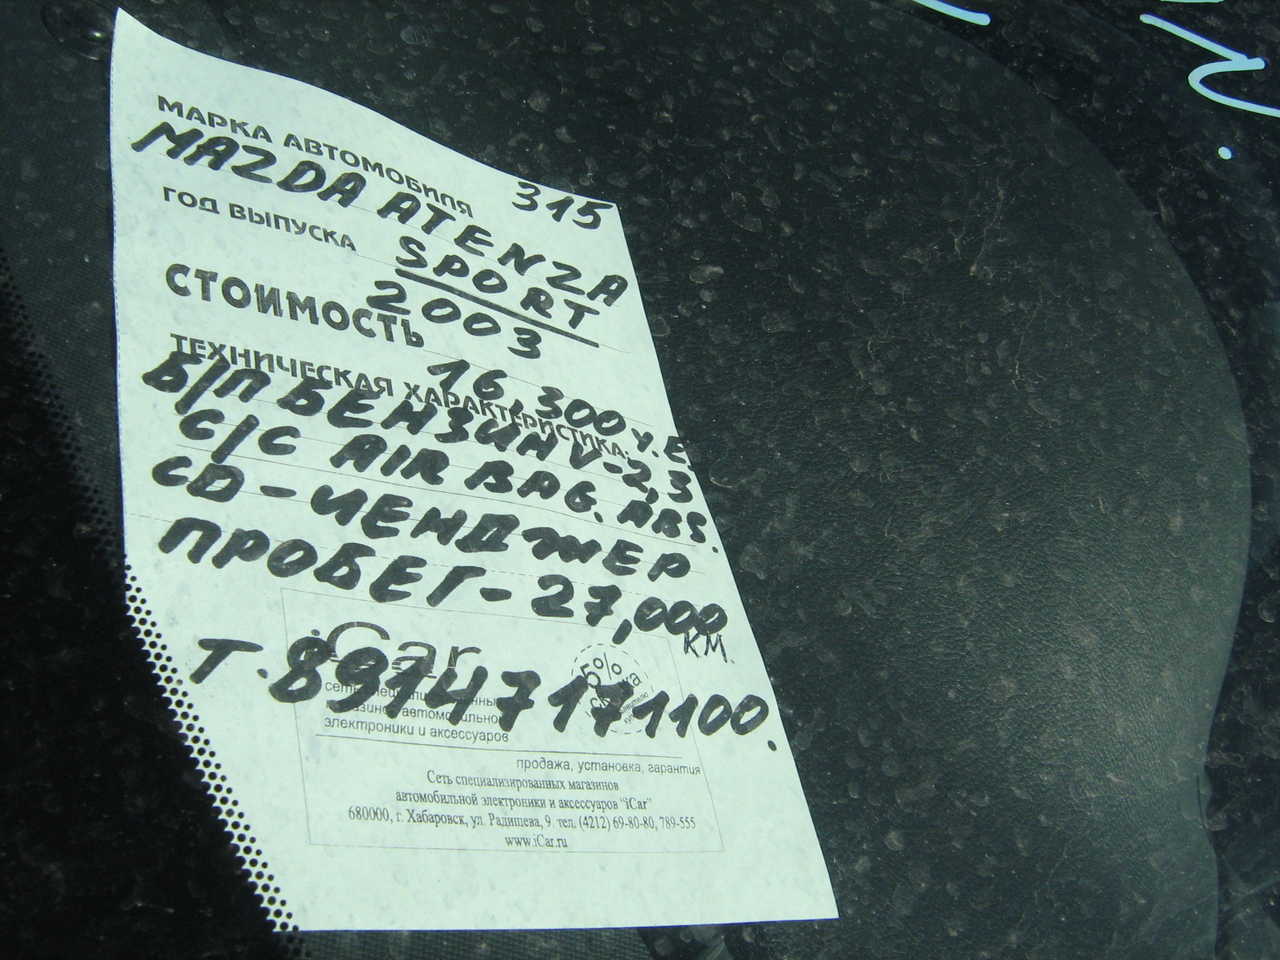 315
МАРКА АВТОМОБИЛЯ
MAZDA ATENZA
SPORT
ГОД ВЫПУСКА 2003
СТОИМОСТЬ 16,300 у.Е.
ТЕХНИЧЕСКАЯ ХАРАКТЕРИСТИКА:
Б/П БЕНЗИН V-2,3
С/С AIR BAG. ABS.
CD-ЧЕНДЖЕР
ПРОБЕГ-27,000
КМ.
Т.89147171100.
iCar
5%
скидка
сеть специализированных
магазинов автомобильной
электроники и аксессуаров
продажа, установка, гарантия
Сеть специализированных магазинов
автомобильной электроники и аксессуаров "iCar"
680000, г. Хабаровск, ул. Радищева, 9. тел. (4212) 69-80-80, 789-555
www.iCar.ru